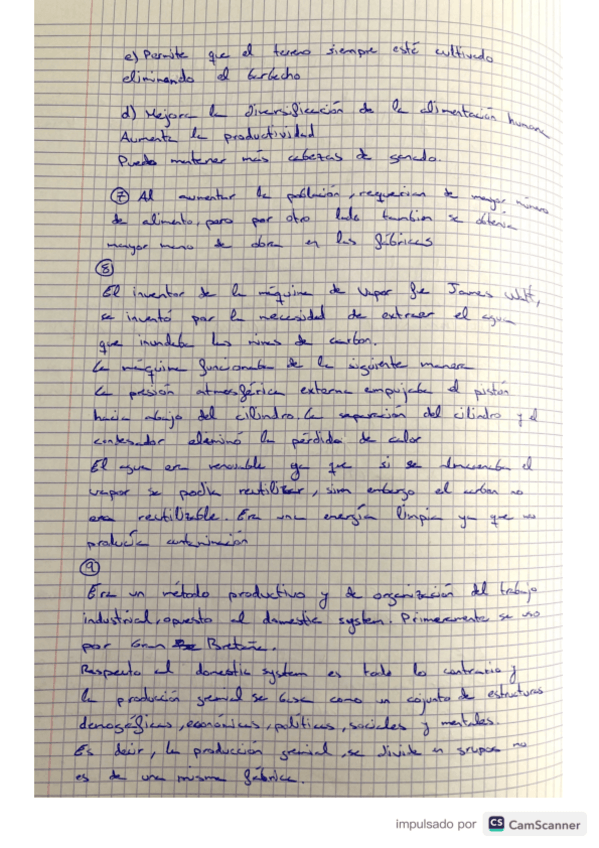 e) Permite que el terreno siempre esté cultivado
eliminando el barbecho
d) Mejora la diversificación de la alimentación humana
Aumenta la productividad
Puede mantener más cabezas de ganado.
⑦ Al aumentar la población, requerian de mayor número
de alimento, pero por otro lado tambien se obtenía
mayor mano de obra en las fábricas
⑧
El inventor de la máquina de vapor fue James Watt,
se inventó por la necesidad de extraer el agua
que inundaba las minas de carbon.
La máquina funcionaba de la siguiente manera
La presión atmosférica externa empujaba el pistón
hacia abajo del cilindro. La separación del cilindro y el
eliminó la pérdida de calor
El agua era renovable ya que si se el
vapor se podía reutilizar, sin embargo el carbon no
era reutilizable. Era una energía limpia ya que no
producía contaminación
⑨
Era un método productivo y de organización del trabajo
industrial, opuesto al domestic system. Primeramente se vio
por Gran Bretaña.
Respecto al domestic system es todo lo contrario y
la producción gremial se basa como un conjunto de estructuras
demográficas, económicas, políticas, sociales y mentales.
Es decir, la producción gremial, se divide en grupos no
es de una misma fábrica.
impulsado por CS CamScanner